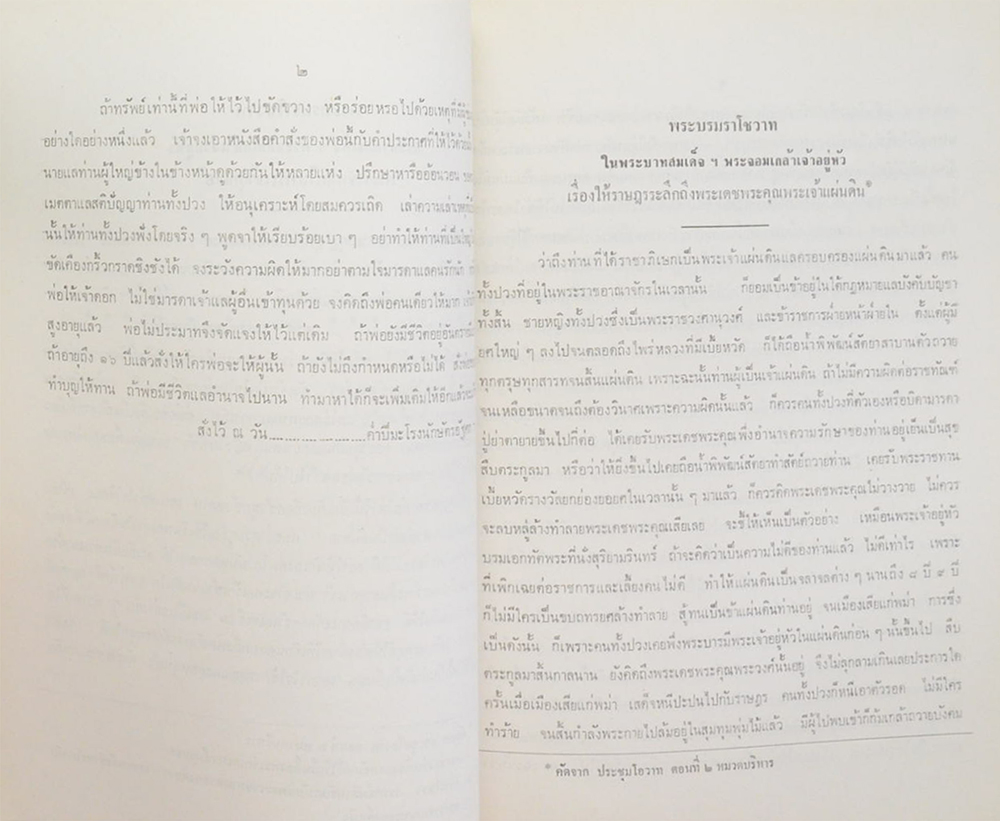 ๒
ถ้าทรัพย์เท่านี้ที่พ่อให้ไว้ไปขัดขวาง หรือร่อยหรอไปด้วยเหตุที่มีผู้
อย่างใดอย่างหนึ่งแล้ว เจ้าจงเอาหนังสือคำสั่งของพ่อนี้กับคำประกาศที่ให้ไว้ด้วย
นายแลท่านผู้ใหญ่ข้างในข้างหน้าดูด้วยกันให้หลายแห่ง ปรึกษาหารืออ้อนวอน
เมตตาแลสติปัญญาท่านทั้งปวง ให้อนุเคราะห์โดยสมควรเถิด เล่าความเล่าเหตุ
นั้นให้ท่านทั้งปวงฟังโดยจริง ๆ พูดจาให้เรียบร้อยเบา ๆ อย่าทำให้ท่านที่เป็นใหญ่
ขัดเคืองกริ้วกราดชิงชังได้ จงระวังความผิดให้มากอย่าตามใจมารดาแลคนรักนัก
พ่อให้เจ้าดอก ไม่ใช่มารดาเจ้าแลผู้อื่นเข้าทุนด้วย จงคิดถึงพ่อคนเดียวให้มาก
สูงอายุแล้ว พ่อไม่ประมาทจึงจัดแจงให้ไว้แต่เดิม ถ้าพ่อยังมีชีวิตอยู่
ถ้าอายุถึง ๑๖ ปีแล้วสั่งให้ใครพ่อจะให้ผู้นั้น ถ้ายังไม่ถึงกำหนดหรือไม่ได้
ทำบุญให้ทาน ถ้าพ่อมีชีวิตแลอำนาจไปนาน ทำมาหาได้ก็จะเพิ่มเติมให้อีกแล้ว
สั่งไว้ ณ วัน....................ค่ำปีมะโรงนักษัตร
พระบรมราโชวาท
ในพระบาทสมเด็จ ฯ พระจอมเกล้าเจ้าอยู่หัว
เรื่องให้ราษฎรระลึกถึงพระเดชพระคุณพระเจ้าแผ่นดิน*
ว่าถึงท่านที่ได้ราชาภิเษกเป็นพระเจ้าแผ่นดินแลครอบครองแผ่นดินมาแล้ว คน
ทั้งปวงที่อยู่ในพระราชอาณาจักรในเวลานั้น ก็ย่อมเป็นข้าอยู่ในใต้กฎหมายแลบังคับบัญชา
ทั้งสิ้น ชายหญิงทั้งปวงซึ่งเป็นพระราชวงศานุวงศ์ และข้าราชการฝ่ายหน้าฝ่ายใน ตั้งแต่ผู้มี
ยศใหญ่ ๆ ลงไปจนตลอดถึงไพร่หลวงที่มีเบี้ยหวัด ก็ได้ถือน้ำพิพัฒน์สัตยาสาบานตัวถวาย
ทุกตรุษทุกสารทจนสิ้นแผ่นดิน เพราะฉะนั้นท่านผู้เป็นเจ้าแผ่นดิน ถ้าไม่มีความผิดต่อราชทัณฑ์
จนเหลือขนาดจนถึงต้องวินาศเพราะความผิดนั้นแล้ว ก็ควรคนทั้งปวงที่ตัวเองหรือบิดามารดา
ปู่ย่าตายายขึ้นไปที่ต่อ ได้เคยรับพระเดชพระคุณพึ่งอำนาจความรักษาของท่านอยู่เย็นเป็นสุข
สืบตระกูลมา หรือว่าให้ยิ่งขึ้นไปเคยถือน้ำพิพัฒน์สัตยาทำสัตย์ถวายท่าน เคยรับพระราชทาน
เบี้ยหวัดรางวัลยกย่องยอยศในเวลานั้น ๆ มาแล้ว ก็ควรคิดพระเดชพระคุณไม่วางวาย ไม่ควร
จะลบหลู่ล้างทำลายพระเดชพระคุณเสียเลย จะชี้ให้เห็นเป็นตัวอย่าง เหมือนพระเจ้าอยู่หัว
บรมเอกทัศพระที่นั่งสุริยามรินทร์ ถ้าจะคิดว่าเป็นความไม่ดีของท่านแล้ว ไม่ดีเท่าไร เพราะ
ที่เพิกเฉยต่อราชการและเลี้ยงคนไม่ดี ทำให้แผ่นดินเป็นจลาจลต่าง ๆ นานถึง ๘ ปี ๙ ปี
ก็ไม่มีใครเป็นขบถทรยศล้างทำลาย สู้ทนเป็นข้าแผ่นดินท่านอยู่ จนเมืองเสียแก่พม่า การซึ่ง
เป็นดังนั้น ก็เพราะคนทั้งปวงเคยพึ่งพระบารมีพระเจ้าอยู่หัวในแผ่นดินก่อน ๆ นั้นขึ้นไป สืบ
ตระกูลมาสิ้นกาลนาน ยังคิดถึงพระเดชพระคุณพระวงศ์นั้นอยู่ จึงไม่ลุกลามเกินเลยประการใด
ครั้นเมื่อเมืองเสียแก่พม่า เสด็จหนีปะปนไปกับราษฎร คนทั้งปวงก็หนีเอาตัวรอด ไม่มีใคร
ทำร้าย จนสิ้นกำลังพระกายไปล้มอยู่ในสุมทุมพุ่มไม้แล้ว มีผู้ไปพบเข้าก็ก้มเกล้าถวายบังคม
* คัดจาก ประชุมโอวาท ตอนที่ ๒ หมวดบริหาร